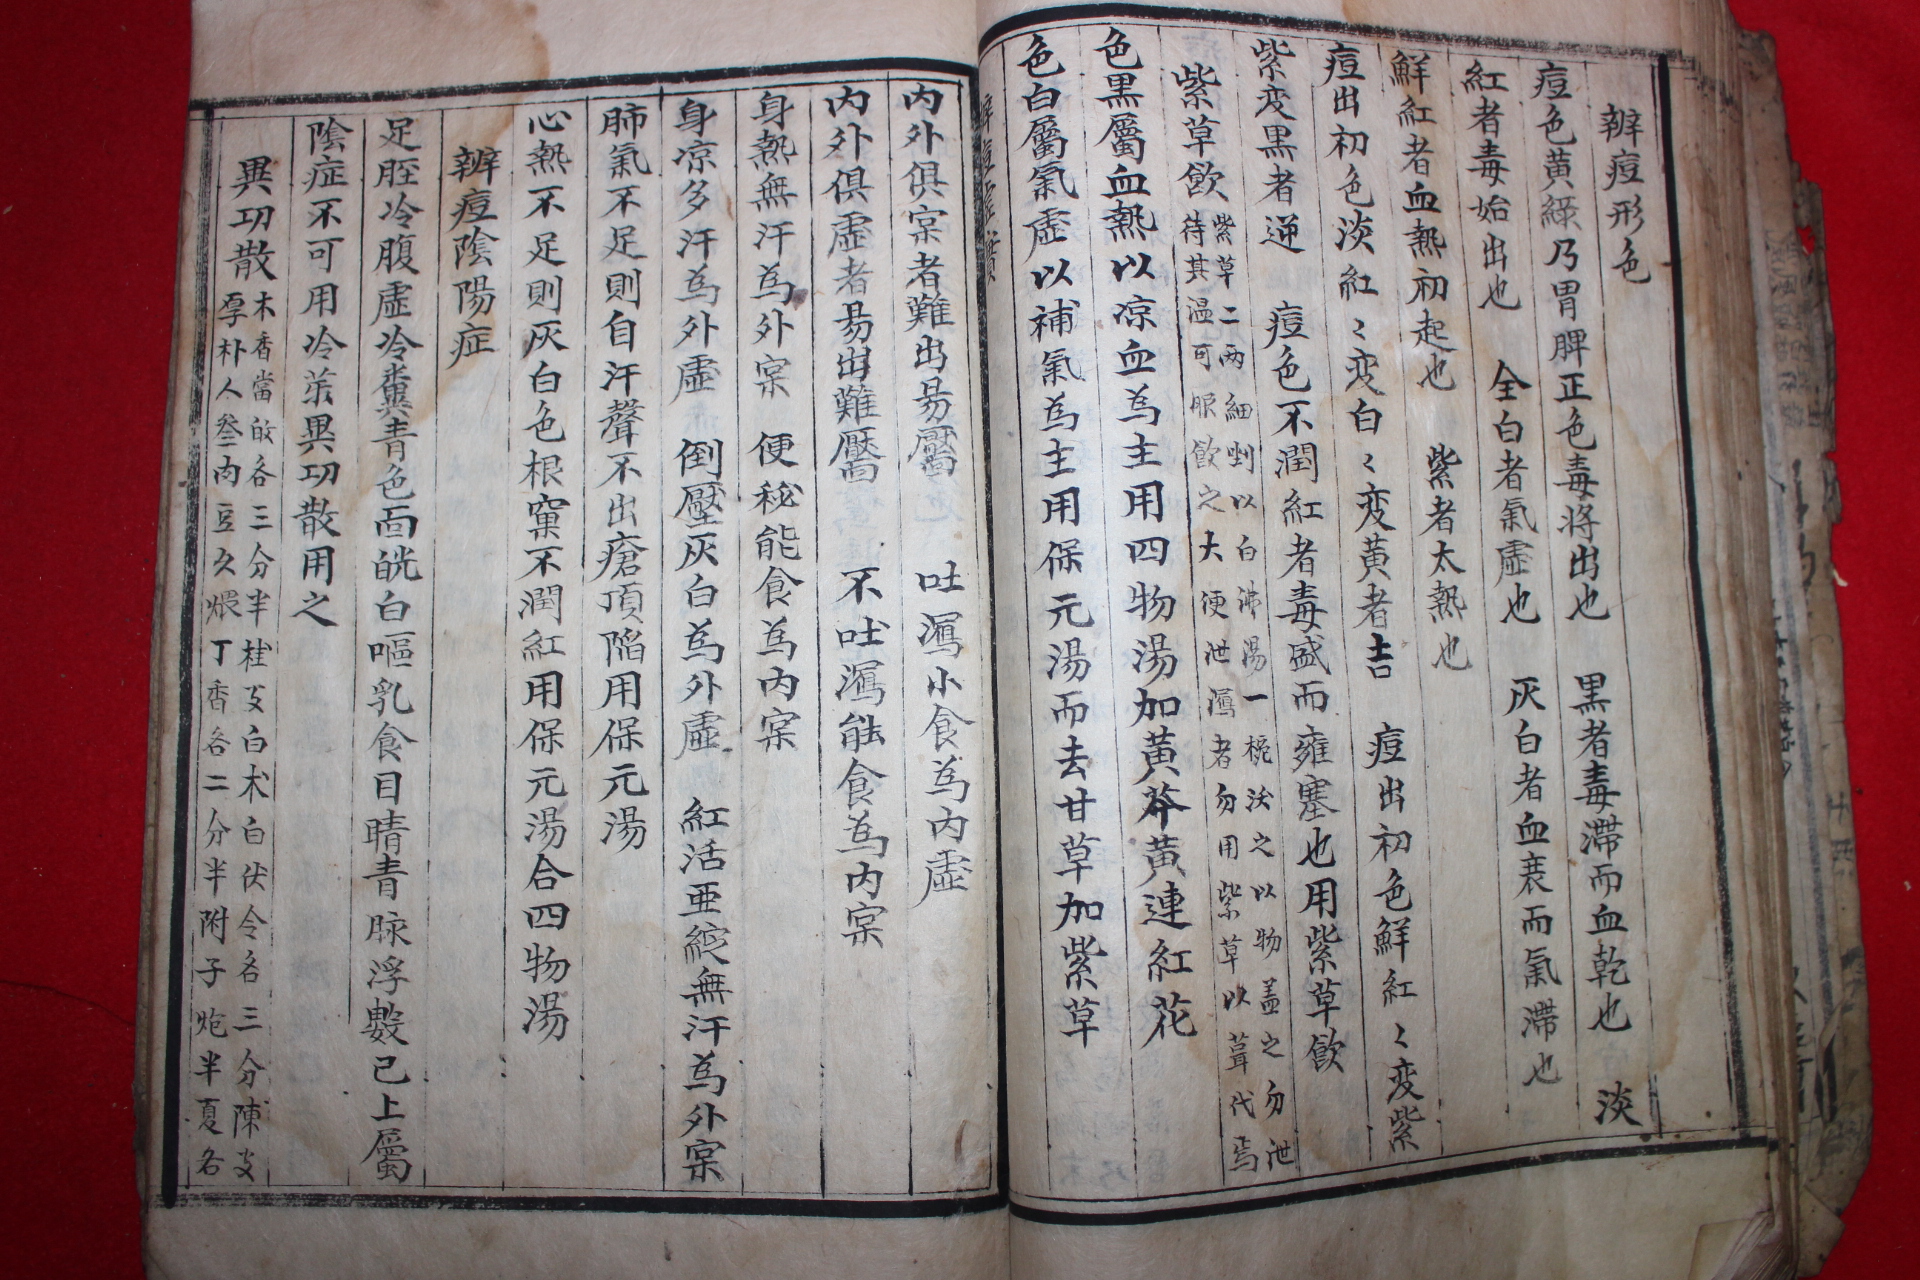 辨痘形色
痘色黄綠乃胃脾正色毒將出也 黒者毒滯而血乾也 淡
紅者毒始出也 全白者氣虛也 灰白者血衰而氣滯也
鮮紅者血熱初起也 紫者太熱也
痘出初色淡紅〻変白〻変黄者吉 痘出初色鮮紅〻変紫
紫変黒者逆 痘色不潤紅者毒盛而雍塞也用紫草飮
紫草飮 紫草二兩細剉以白沸湯一椀沃之以物盖之勿泄
待其温可服飮之大便泄瀉者勿用紫草以茸代焉
色黒屬血熱以凉血為主用四物湯加黄芩黄連紅花
色白屬氣虛以補氣為主用保元湯而去甘草加紫草
辨痘虛實
内外俱宲者難出易靨 吐瀉小食為内虛
内外俱虛者易出難靨 不吐瀉能食為内宲
身熱無汗為外宲 便秘能食為内宲
身凉多汗為外虛 倒壓灰白為外虛 紅活亜綻無汗為外宲
肺氣不足則自汗聲不出瘡頂陷用保元湯
心熱不足則灰白色根窠不潤紅用保元湯合四物湯
辨痘隂陽症
足脛冷腹虛冷糞青色面皝白嘔乳食目睛青脉浮數已上屬
隂症不可用冷茱異功散用之
異功散 木香當皈各三分半桂支白术白伏令各三分陳支
厚朴人叄肉豆久煨丁香各二分半附子炮半夏各